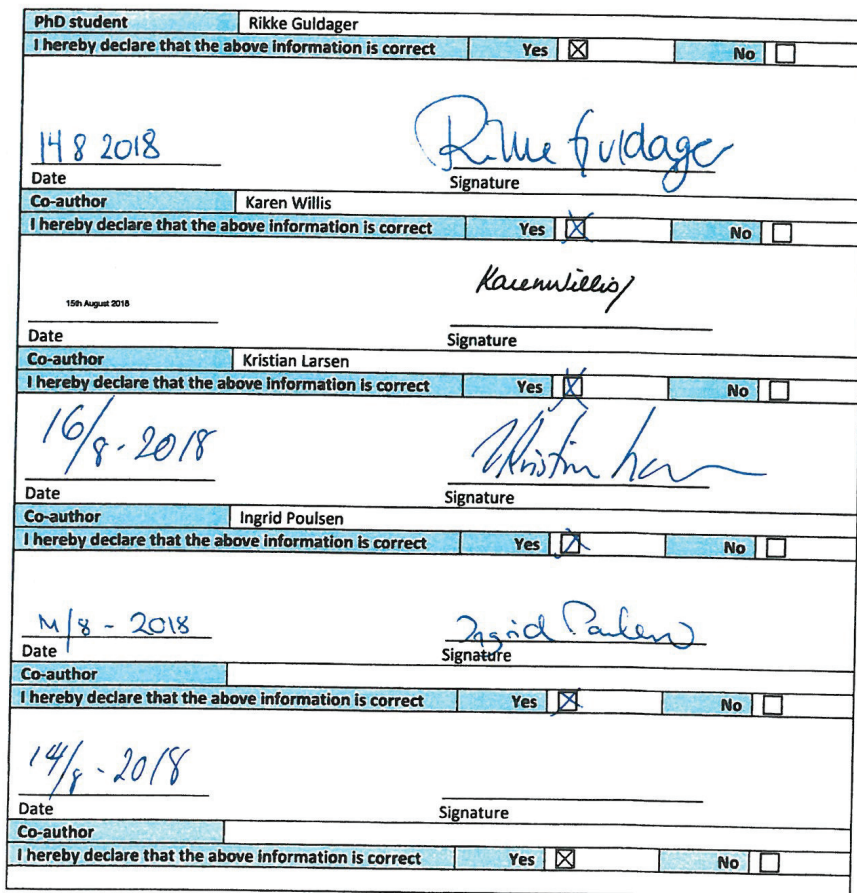 PhD student Rikke Guldager
I hereby declare that the above information is correct Yes ☒ No ☐
14 8 2018 Rikke Guldager
Date Signature
Co-author Karen Willis
I hereby declare that the above information is correct Yes ☒ No ☐
15th August 2018 Karen Willis
Date Signature
Co-author Kristian Larsen
I hereby declare that the above information is correct Yes ☒ No ☐
16/8 - 2018 Kristian
Date Signature
Co-author Ingrid Poulsen
I hereby declare that the above information is correct Yes ☒ No ☐
/8 - 2018 Ingrid Poulsen
Date Signature
Co-author
I hereby declare that the above information is correct Yes ☒ No ☐
14/8 - 2018
Date Signature
Co-author
I hereby declare that the above information is correct Yes ☒ No ☐